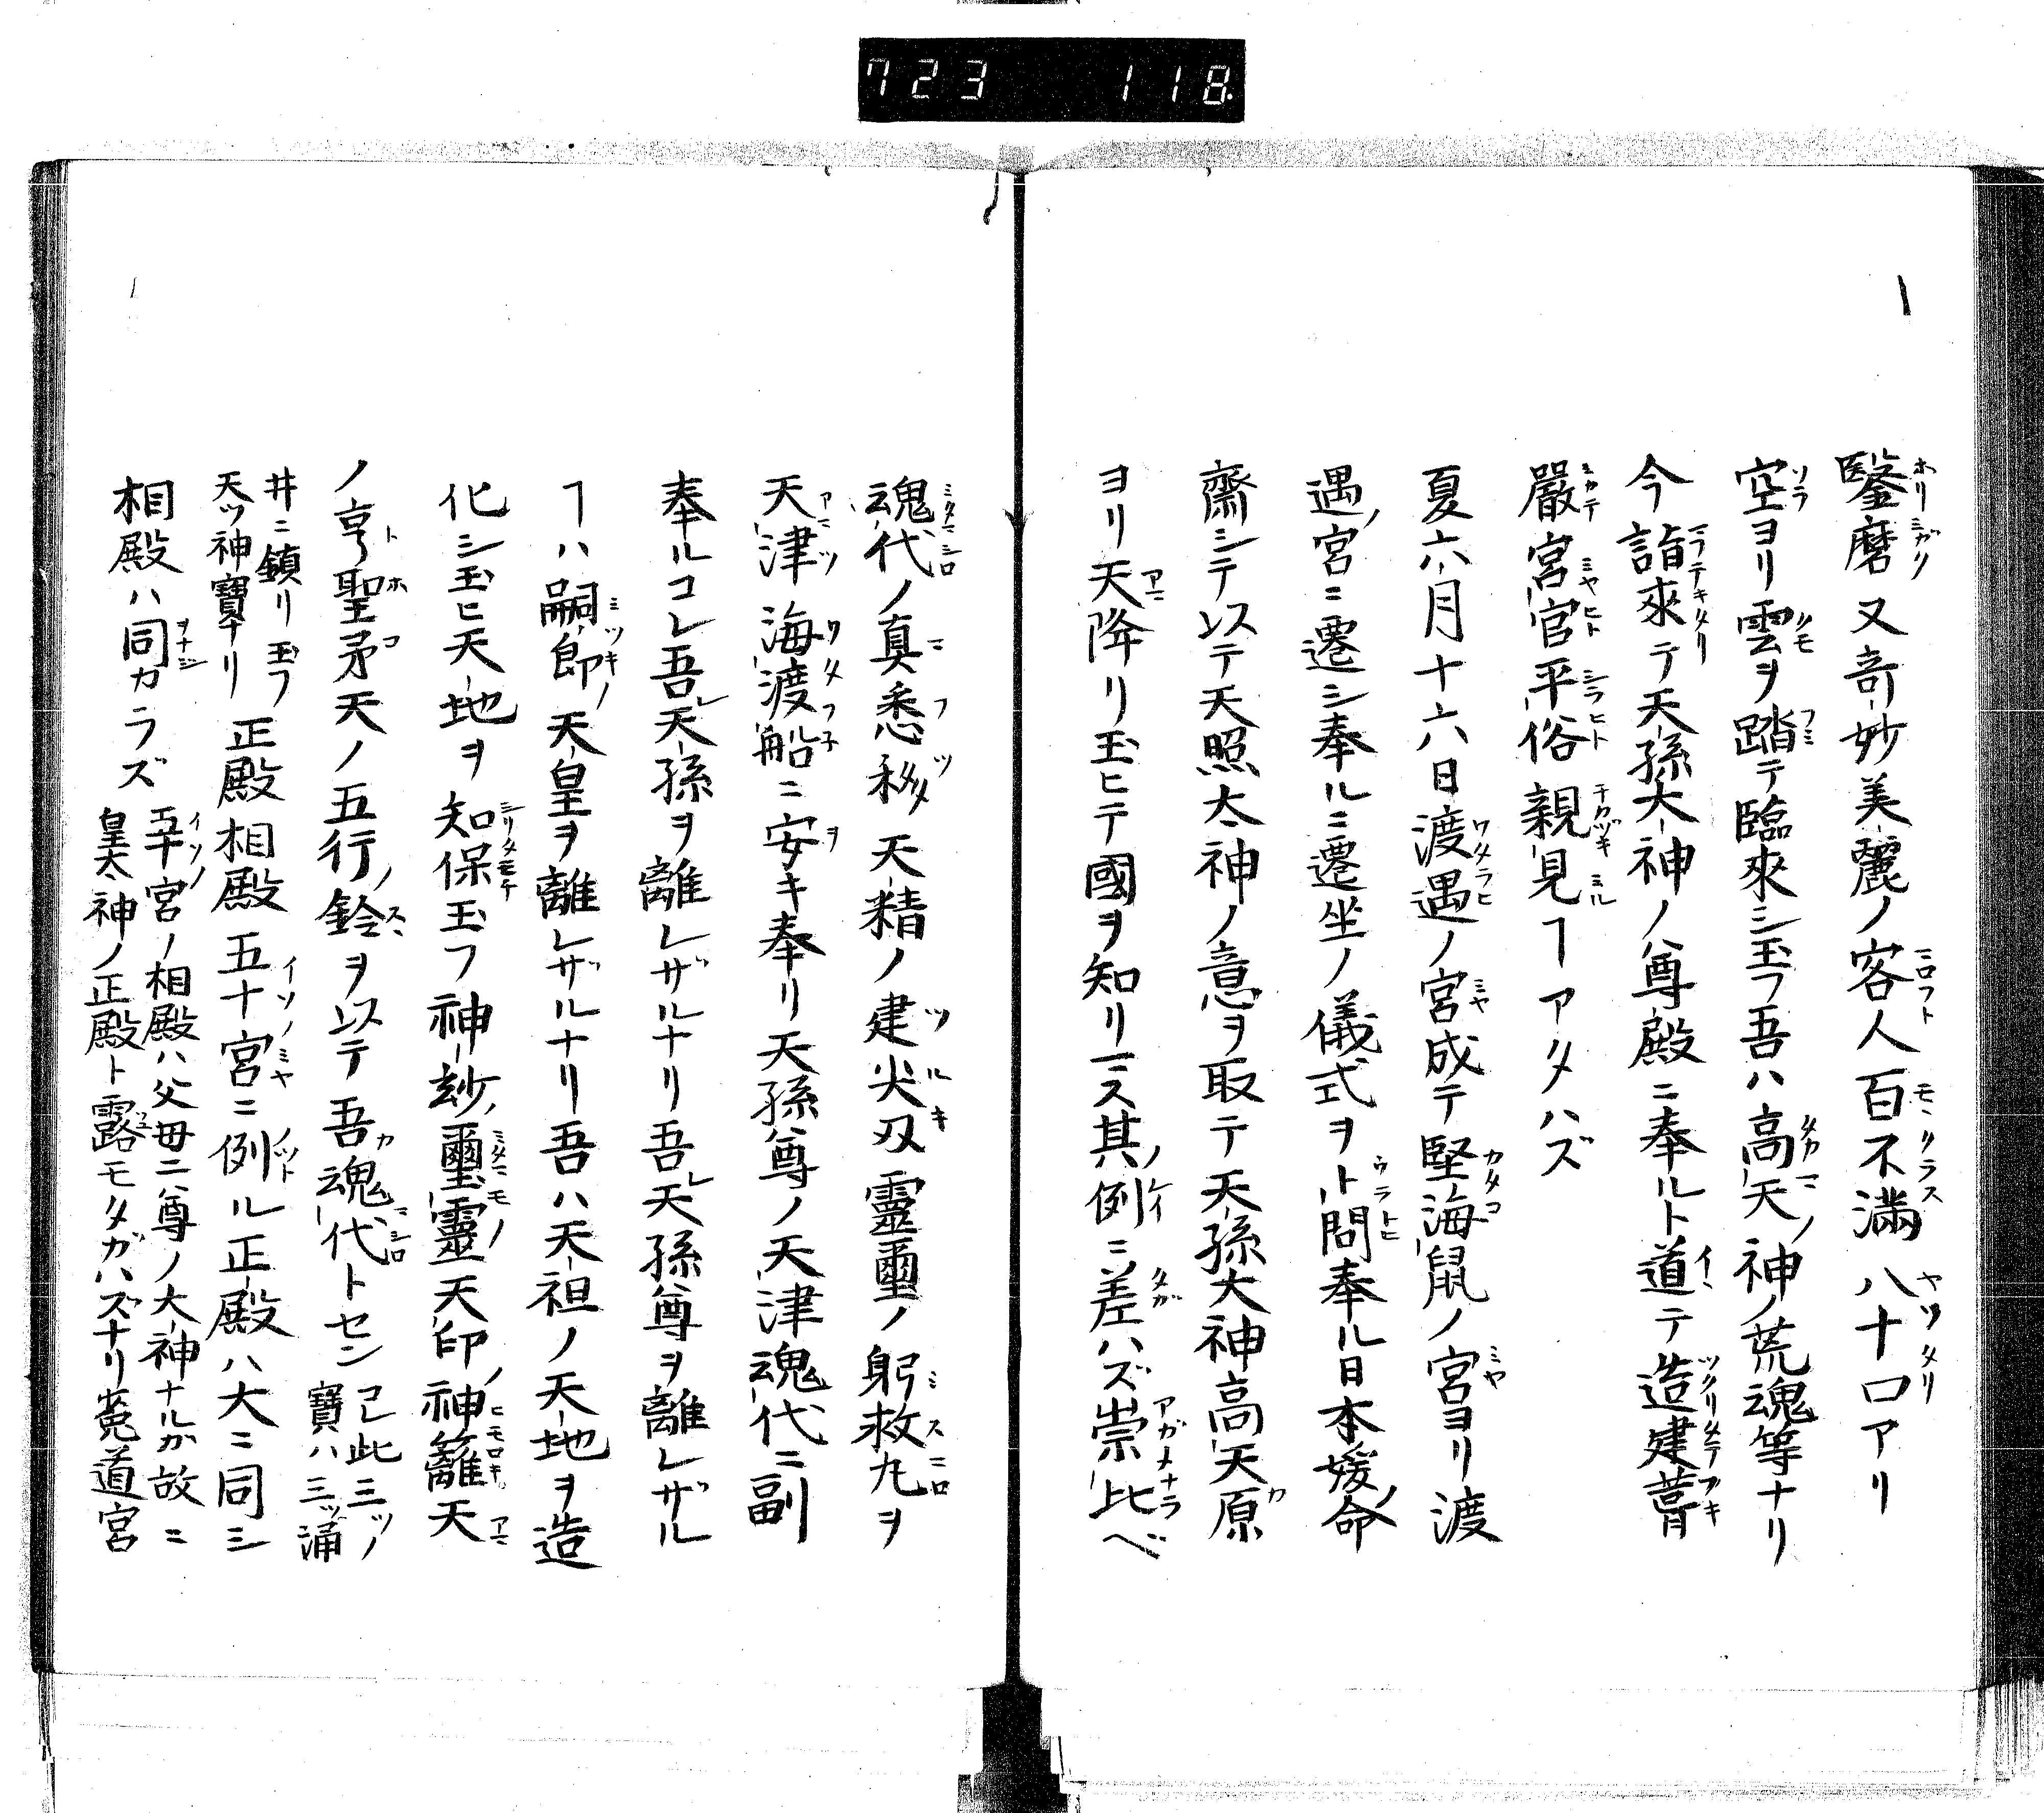 723 118
鑿磨又奇妙美麗ノ客人百不滿八十口アリ
空ヨリ雲ヲ踏テ臨來シ玉フ吾ハ高天ノ神ノ荒魂等ナリ
今詣來テ天孫大神ノ尊殿ニ奉ルト道テ造建葺
嚴宮宮官平俗親見ヿアタハズ
夏六月十六日渡遇ノ宮成テ堅海鼠ノ宮ヨリ渡
遇ノ宮ニ遷シ奉ルニ遷坐ノ儀式ヲ卜問奉ル日本媛ノ命
齋シテ以テ天照太神ノ意ヲ取テ天孫大神高天原
ヨリ天降リ玉ヒテ國ヲ知リ其ノ例ニ差ハズ崇比ベ
魂代ノ真悉移天精ノ建尖刄靈璽ノ躬救丸ヲ
天津海渡船ニ安キ奉リ天孫尊ノ天津魂代ニ副
奉ルコレ吾レ天孫ヲ離レザルナリ吾レ天孫尊ヲ離レザル
ヿハ嗣即ノ天皇ヲ離レザルナリ吾ハ天祖ノ天地ヲ造
化シ玉ヒ天地ヲ知保玉フ神玅ノ璽靈天印ノ神籬天
ノ亨聖矛天ノ五行ノ鈴ヲ以テ吾魂代トセンコレ此三ツノ
寶ハ三ッ涌
井ニ鎮リ玉フ
天ツ神寶ナリ正殿相殿五十宮ニ例ル正殿ハ大ニ同シ
相殿ハ同カラズ五十宮ノ相殿ハ父母二尊ノ大神ナルガ故ニ
皇太神ノ正殿ト露モタガハズナリ菟道宮